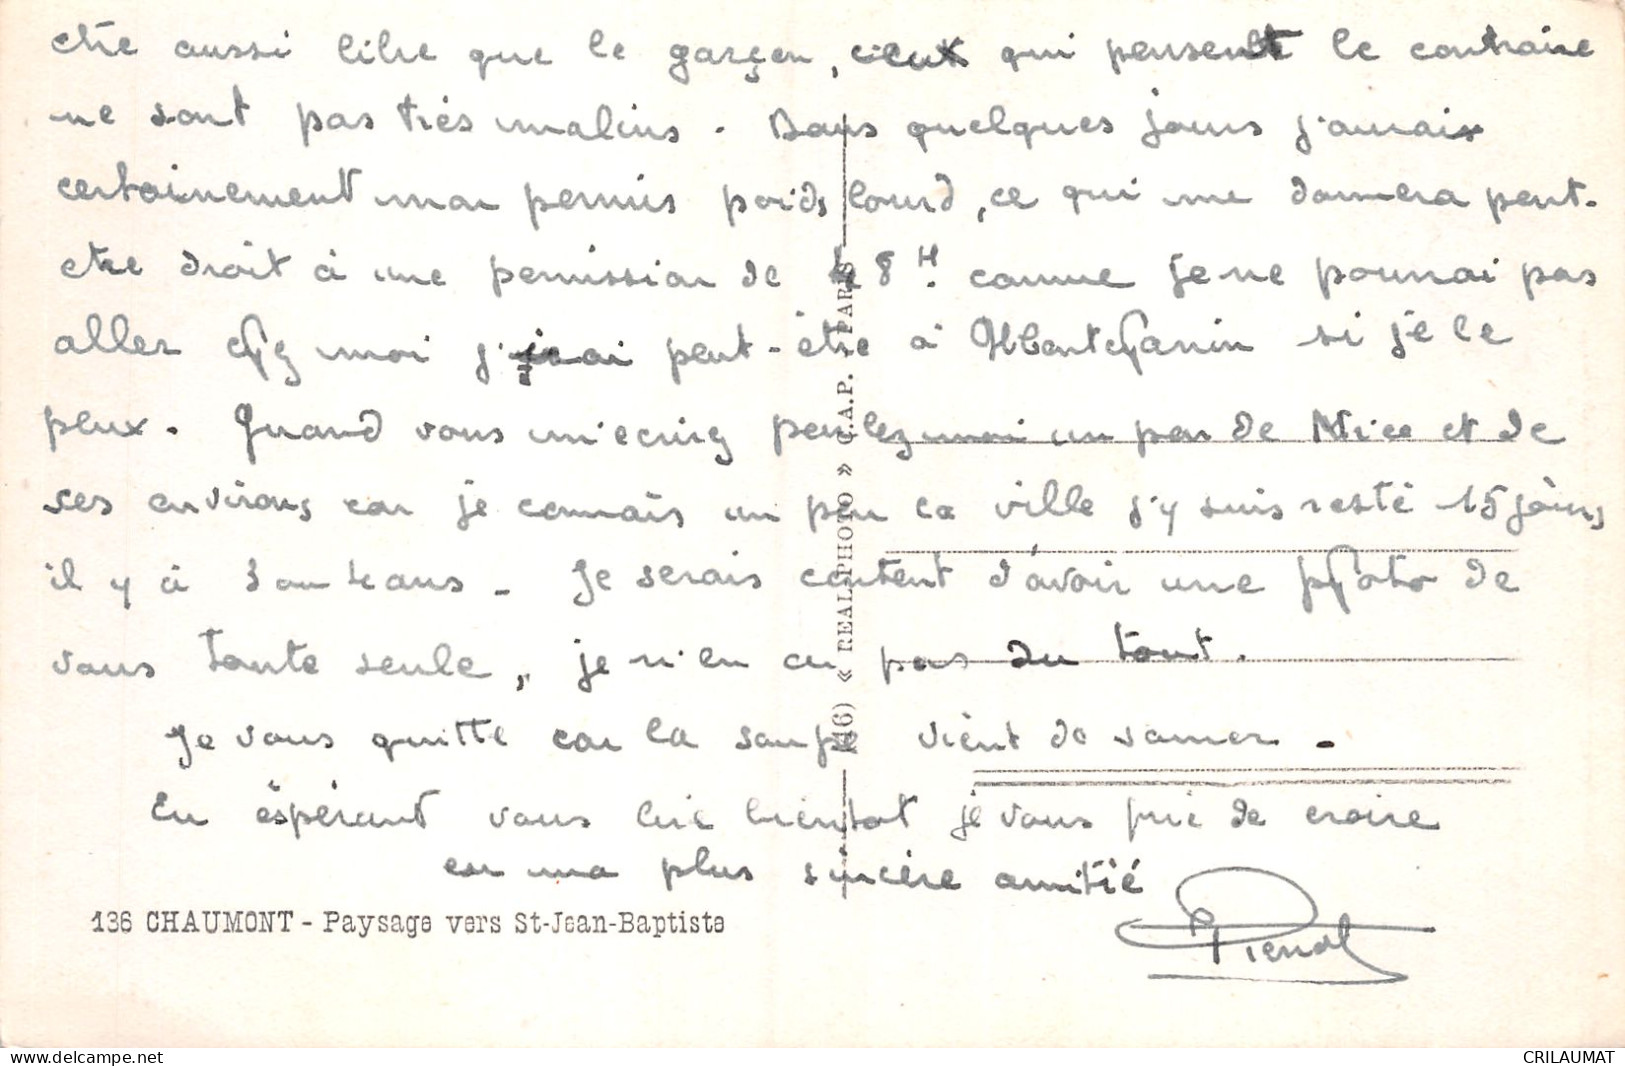 être aussi libre que le garçon, ceux qui pensent le contraire
ne sont pas très malins. Dans quelques jours j'aurais
certainement mon permis poids lourd, ce qui me donnera peut-
être droit à une permission de 48H. comme je ne pourrai pas
aller chez moi j'irai peut-être à Montchanin si je le
peux. Quand vous m'ecrirez parlez moi un peu de Nice et de
ses environs car je connais un peu la ville j'y suis resté 15 jours
il y à 3 ou 4 ans - Je serais content d'avoir une photo de
vous toute seule, je n'en ai pas du tout.
Je vous quitte car la soupe vient de sonner -
En éspérant vous lire bientot je vous prie de croire
en ma plus sincère amitié
Pierrot
136 CHAUMONT - Paysage vers St-Jean-Baptiste
(46) « REAL-PHOTO » C.A.P. PARIS
www.delcampe.net
CRILAUMAT